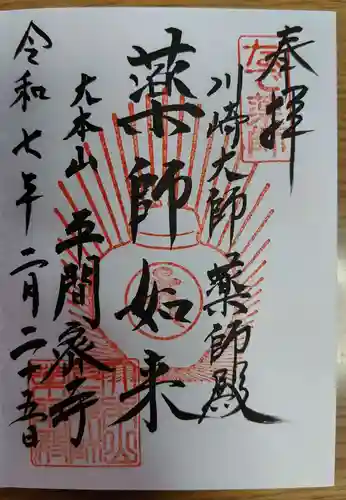 奉拝
川崎大師 薬師殿
薬師如来
大本山 平間寺
令和七年 二月二十五日